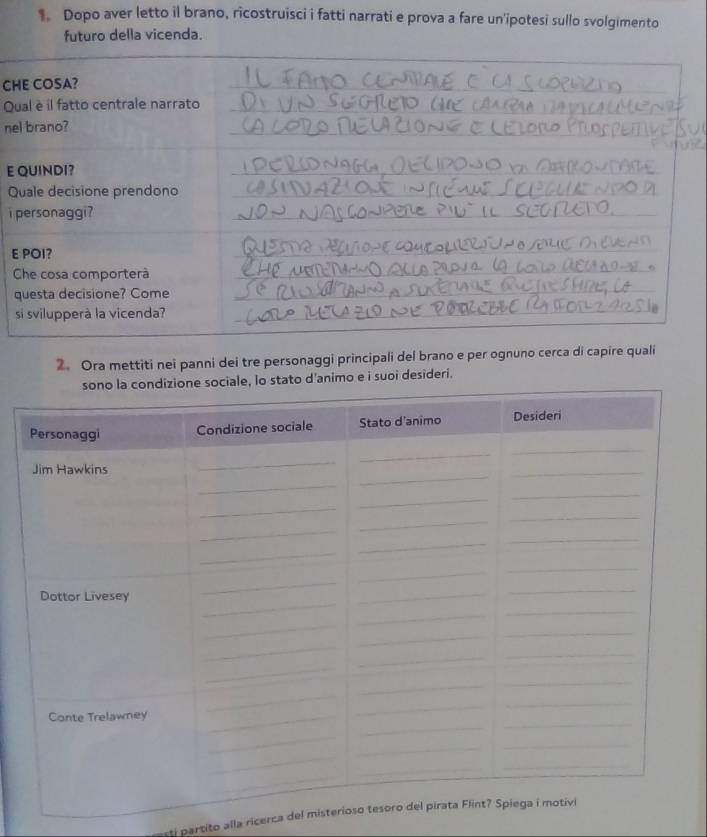 1. Dopo aver letto il brano, ricostruisci i fatti narrati e prova a fare un'ipotesi sullo svolgimento
futuro della vicenda.
CHE COSA?
Qual è il fatto centrale narrato
nel brano?
IL FATTO CENTRALE È LA SCOPERTA
DI UN SEGRETO CHE CAMBIA RADICALMENTE
LA LORO RELAZIONE E LE LORO PROSPETTIVE SUL
FUTURO
E QUINDI?
Quale decisione prendono
i personaggi?
I PERSONAGGI DECIDONO DI AFFRONTARE
LA SITUAZIONE INSIEME SCEGLIENDO DI
NON NASCONDERE PIÙ IL SEGRETO.
E POI?
Che cosa comporterà
questa decisione? Come
si svilupperà la vicenda?
QUESTA DECISIONE UNA SERIE DI EVENTI
CHE METTERANNO ALLA PROVA LA LORO RELAZIONE.
SE RIUSCIRANNO A SUPERARE QUESTE SFIDE, LA
LORO RELAZIONE POTREBBE RAFFORZARSI.
2. Ora mettiti nei panni dei tre personaggi principali del brano e per ognuno cerca di capire quali
sono la condizione sociale, lo stato d'animo e i suoi desideri.
Personaggi Condizione sociale Stato d'animo Desideri
Jim Hawkins
Dottor Livesey
Conte Trelawney
partito alla ricerca del misterioso tesoro del pirata Flint? Spiega i motivi